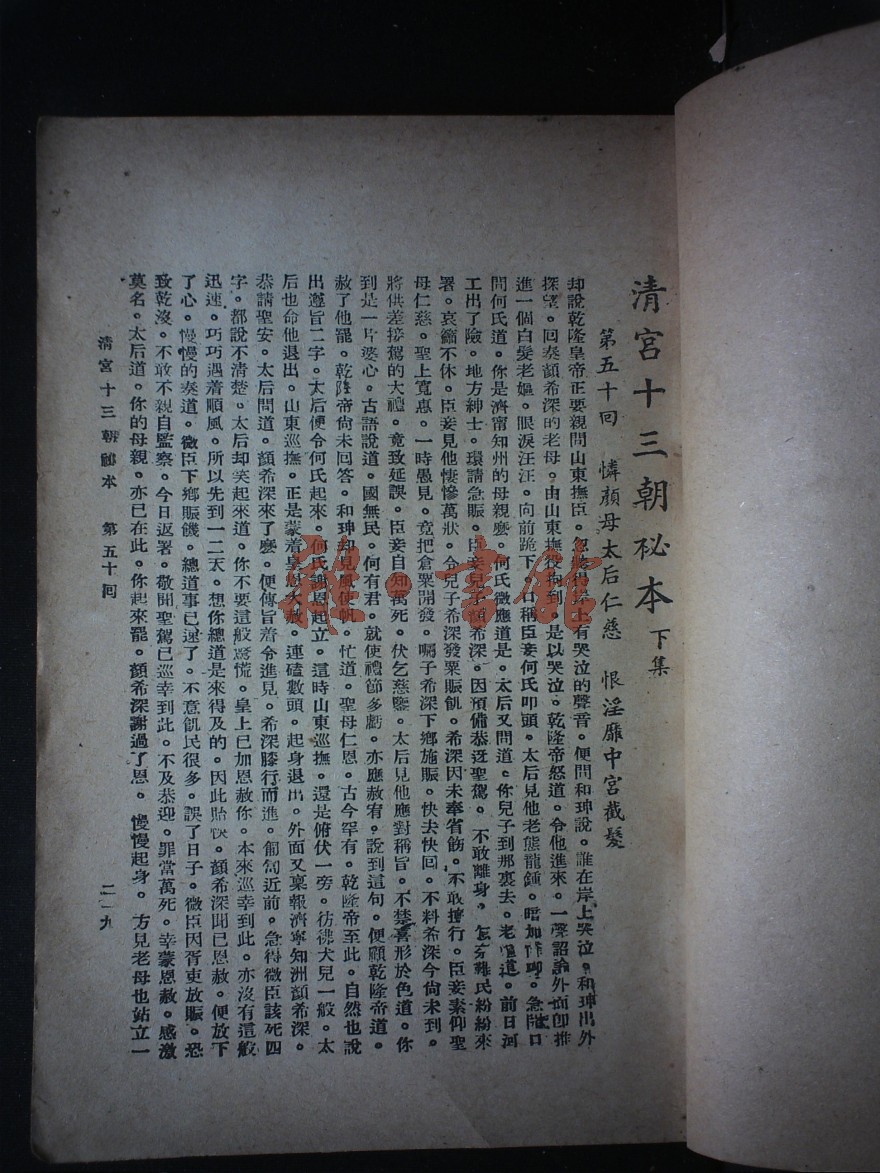 清宮十三朝秘本 下集
第五十回 憐顏母太后仁慈 恨淫靡中宮截髮
却說乾隆皇帝正要親問山東撫臣。忽聽得岸上有哭泣的聲音。便問和珅說。誰在岸上哭泣。和珅出外
探望。回奏顏希深的老母。由山東撫役拘到。是以哭泣。乾隆帝怒道。令他進來。一聲詔諭外面卽推
進一個白髮老嫗。眼淚汪汪。向前跪下。口稱臣妾何氏叩頭。太后見他老態龍鍾。暗加憐卹。急開口
問何氏道。你是濟甯知州的母親麽。何氏微應道是。太后又問道。你兒子到那裏去。老嫗道。前日河
工出了險。地方紳士。環請急賑。臣妾兒子顏希深。因預備恭迓聖駕。不敢離身。怎奈難民紛紛來
署。哀籲不休。臣妾見他悽慘萬狀。令兒子希深發粟賑飢。希深因未奉省飭。不敢擅行。臣妾素仰聖
母仁慈。聖上寬惠。一時愚見。竟把倉粟開發。囑子希深下鄉施賑。快去快回。不料希深今尙未到。
將供差接駕的大禮。竟致延誤。臣妾自知萬死。伏乞慈鑒。太后見他應對稱旨。不禁喜形於色道。你
到是一片婆心。古語說道。國無民。何有君。就使禮節多虧。亦應赦宥。說到這句。便顧乾隆帝道。
赦了他罷。乾隆帝尙未回答。和珅却見風使帆。忙道。聖母仁恩。古今罕有。乾隆帝至此。自然也說
出遵旨二字。太后便令何氏起來。何氏謝恩起立。這時山東巡撫。還是俯伏一旁。彷彿犬兒一般。太
后也命他退出。山東巡撫。正是蒙着皇恩大赦。連磕數頭。起身退出。外面又稟報濟寧知洲顏希深。
恭請聖安。太后問道。顏希深來了麽。便傳旨着令進見。希深膝行而進。匍匐近前。急得微臣該死四
字。都說不清楚。太后却笑起來道。你不要這般驚慌。皇上已加恩赦你。本來巡幸到此。亦沒有這般
迅速。巧巧遇着順風。所以先到一二天。想你總道是來得及的。因此貽悞。顏希深聞已恩赦。便放下
了心。慢慢的奏道。微臣下鄉賑饑。總道事已速了。不意飢民很多。誤了日子。微臣因胥吏放賑。恐
致乾沒。不敢不親自監察。今日返署。敬聞聖駕已巡幸到此。不及恭迎。罪當萬死。幸蒙恩赦。感激
莫名。太后道。你的母親。亦已在此。你起來罷。顏希深謝過了恩。慢慢起身。方見老母也站立一
清宮十三朝秘本 第五十回 二一九
雅·書館